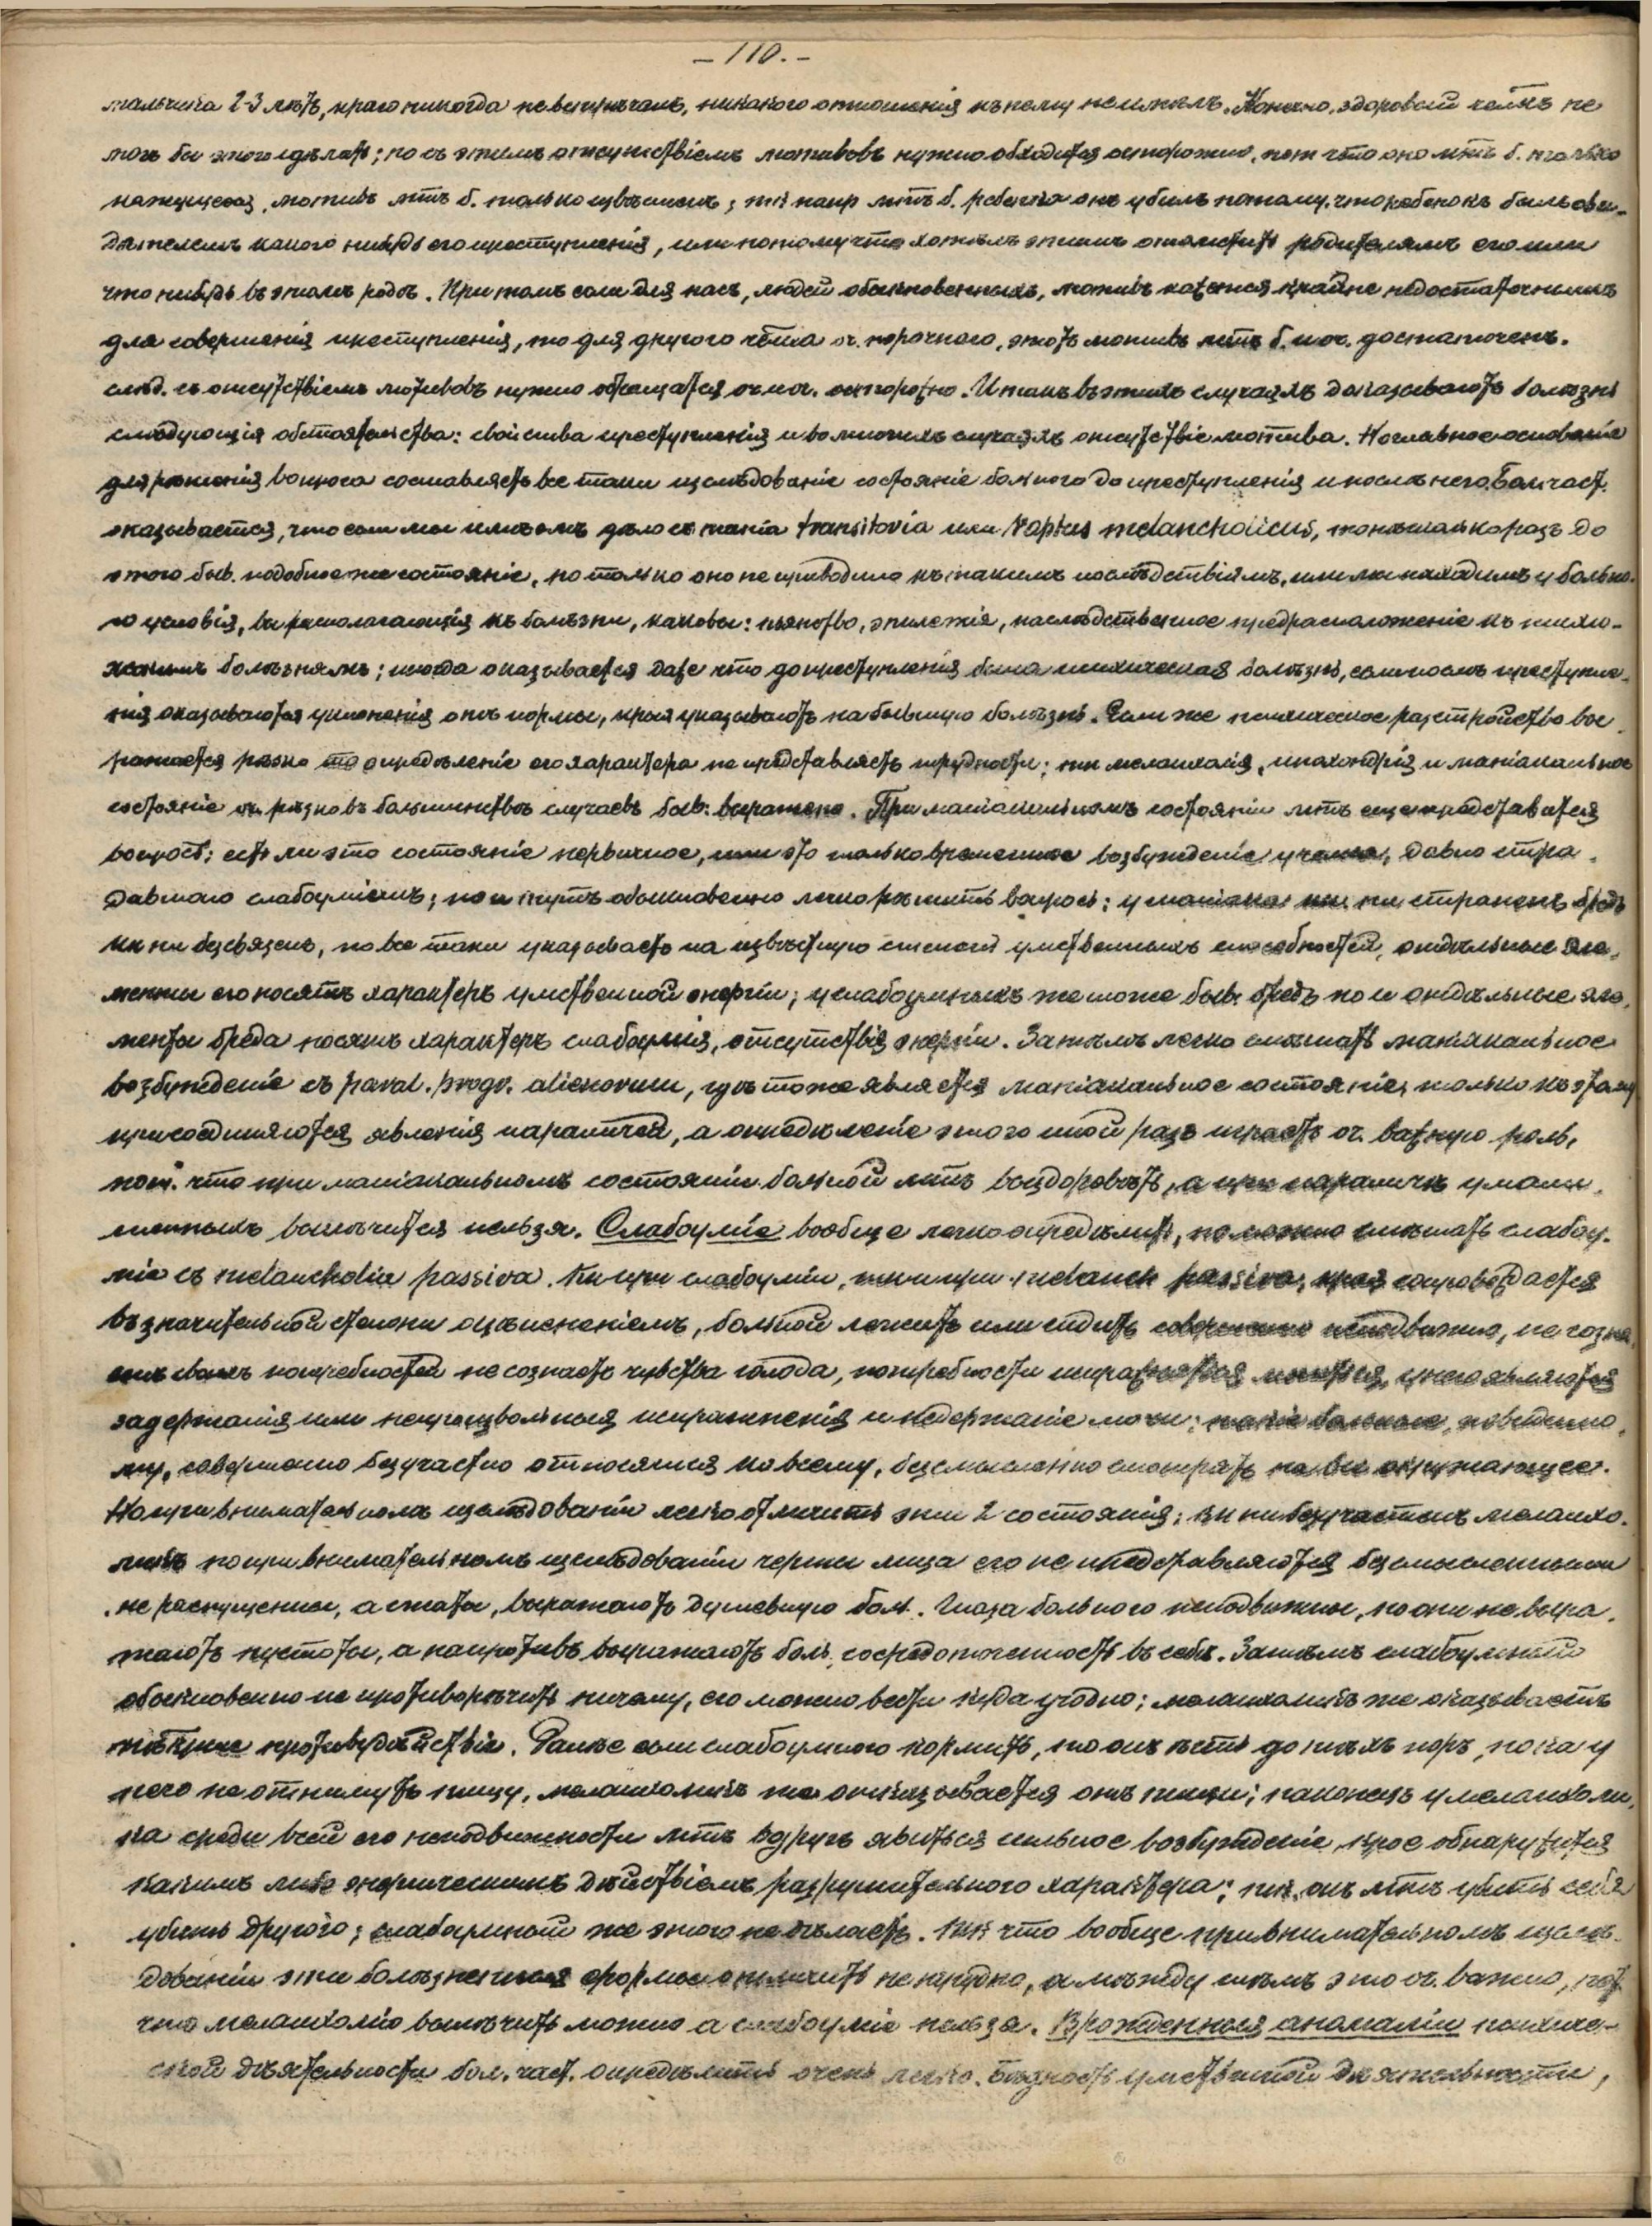 – 110. –
мальчика 2-3 лѣтъ, краго никогда не встрѣчалъ, никакого отношенія къ нему не имѣлъ. Конечно, здоровый челкъ не
могъ бы этого сдѣлать; но съ этимъ отсутствіемъ мотивовъ нужно обходится осторожно, пот. что оно мтъ б. только
кажущееся, мотивъ мтъ б. только неизвѣстенъ; тк напр мтъ б. ребенка онъ убилъ потому, что ребенокъ былъ сви-
дѣтелемъ какого нибудь его преступленія, или потому что хотѣлъ этимъ отомстить родителямъ его или
что нибудь въ этомъ родѣ. При томъ если для насъ, людей обыкновенныхъ, мотивъ кажется крайне недостаточнымъ
для совершенія преступленія, то для другого челка оч. порочного, этотъ мотивъ мтъ б. и оч. достаточенъ.
слѣд. съ отсутствіемъ мотивовъ нужно обращаться очен. осторожно. Итакъ въ этихъ случаяхъ доказываютъ болѣзнь
слѣдующія обстоятельства: свойства преступленія и во многихъ случаяхъ отсутствіе мотива. Но главное основаніе
для рѣшенія вопроса составляетъ все таки изслѣдованіе состоянія больного до преступленія и послѣ него. Бол. част.
оказывается, что если мы имѣемъ дѣло съ mania transitoria или raptus melancholicus, то нѣсколько разъ до
этого был. подобное же состояніе, но только оно не приводило къ такимъ послѣдствіямъ, или мы находимъ у больно-
го условія, располагающія къ болѣзни, каковы: пьянство, эпилепсія, наслѣдственное предрасположеніе къ психи-
ческимъ болѣзнямъ; иногда оказывается даже что до преступленія была психическая болѣзнь, если послѣ преступле-
нія оказываются уклоненія отъ нормы, крыя указываютъ на бывшую болѣзнь. Если же психическое разстройство вы-
ражается рѣзко то опредѣленіе его характера не представляетъ трудности; тк меланхолія, ипохондрія и маніакальное
состояніе оч. рѣзко въ большинствѣ случаевъ был. выражено. При маніакальномъ состояніи мтъ еще представится
вопросъ: есть ли это состояніе первичное, или это только временное возбужденіе у челка, давно стра-
давшаго слабоуміемъ; но и тутъ обыкновенно легко рѣшить вопросъ: у маніака какъ ни страненъ бредъ
кк ни безсвязенъ, но все таки указываетъ на извѣстную степень умственныхъ способностей, отдѣльные эле-
менты его носятъ характеръ умственной энергіи; у слабоумныхъ же тоже был. бредъ но и отдѣльные эле-
менты бреда носятъ характеръ слабоумія, отсутствія энергіи. Затѣмъ легко смѣшать маніакальное
возбужденіе съ paral. progr. alienorum, гдѣ тоже является маніакальное состояніе, только къ этому
присоединяются явленія параличей, а опредѣленіе этого иной разъ играетъ оч. важную роль,
пот. что при маніакальномъ состояніи больной мтъ выздоровѣть, а при параличѣ умали-
шенныхъ вылѣчится нельзя. Слабоуміе вообще легко опредѣлить, но можно смѣшать слабоу-
міе съ melancholia passiva. Кк при слабоуміи, тк и при melanch passiva, края сопровождается
въ значительной степени оцѣпенѣніемъ, больной лежитъ или сидитъ совершенно неподвижно, не созна-
етъ своихъ потребностей не сознаетъ чувства голода, потребности испражняться мочиться, у него являются
задержанія или непроизвольныя испражненія и недержаніе мочи; такіе больные, повидимо-
му, совершенно безучастно относятся ко всему, безсмысленно смотрятъ на все окружающее.
Но при внимательномъ изслѣдованіи легко отличить эти 2 состоянія; кк ни безучастенъ меланхо-
ликъ но при внимательномъ изслѣдованіи черты лица его не представляются безсмысленными
не распущены, а сжаты, выражаютъ душевную боль. Глаза больного неподвижны, но они не выра-
жаютъ пустоты, а напротивъ выражаютъ боль, сосредоточенность въ себѣ. Затѣмъ слабоумный
обыкновенно не противорѣчитъ ничему, его можно вести куда угодно; меланхоликъ же оказываетъ
противудѣйствіе. Далѣе если слабоумного кормить, то онъ ѣстъ до тѣхъ поръ, пока у
него не отнимутъ пищу, меланхоликъ же отказывается отъ пищи; наконецъ у меланхоли-
ка среди всей его неподвижности мтъ вдругъ явиться сильное возбужденіе, крое обнаружится
какимъ либо энергическимъ дѣйствіемъ разрушительного характера; тк. онъ мтъ убить себя
убить другого; слабоумный же этого не сдѣлаетъ. Тк что вообще при внимательномъ изслѣ-
дованіи эти болѣзненныя формы отличить не трудно, а между тѣмъ это оч. важно, пот.
что меланхолію вылѣчить можно а слабоуміе нельзя. Врожденныя аномаліи психиче-
ской дѣятельности бол. част. опредѣлить очень легко. Бѣдность умственной дѣятельности,